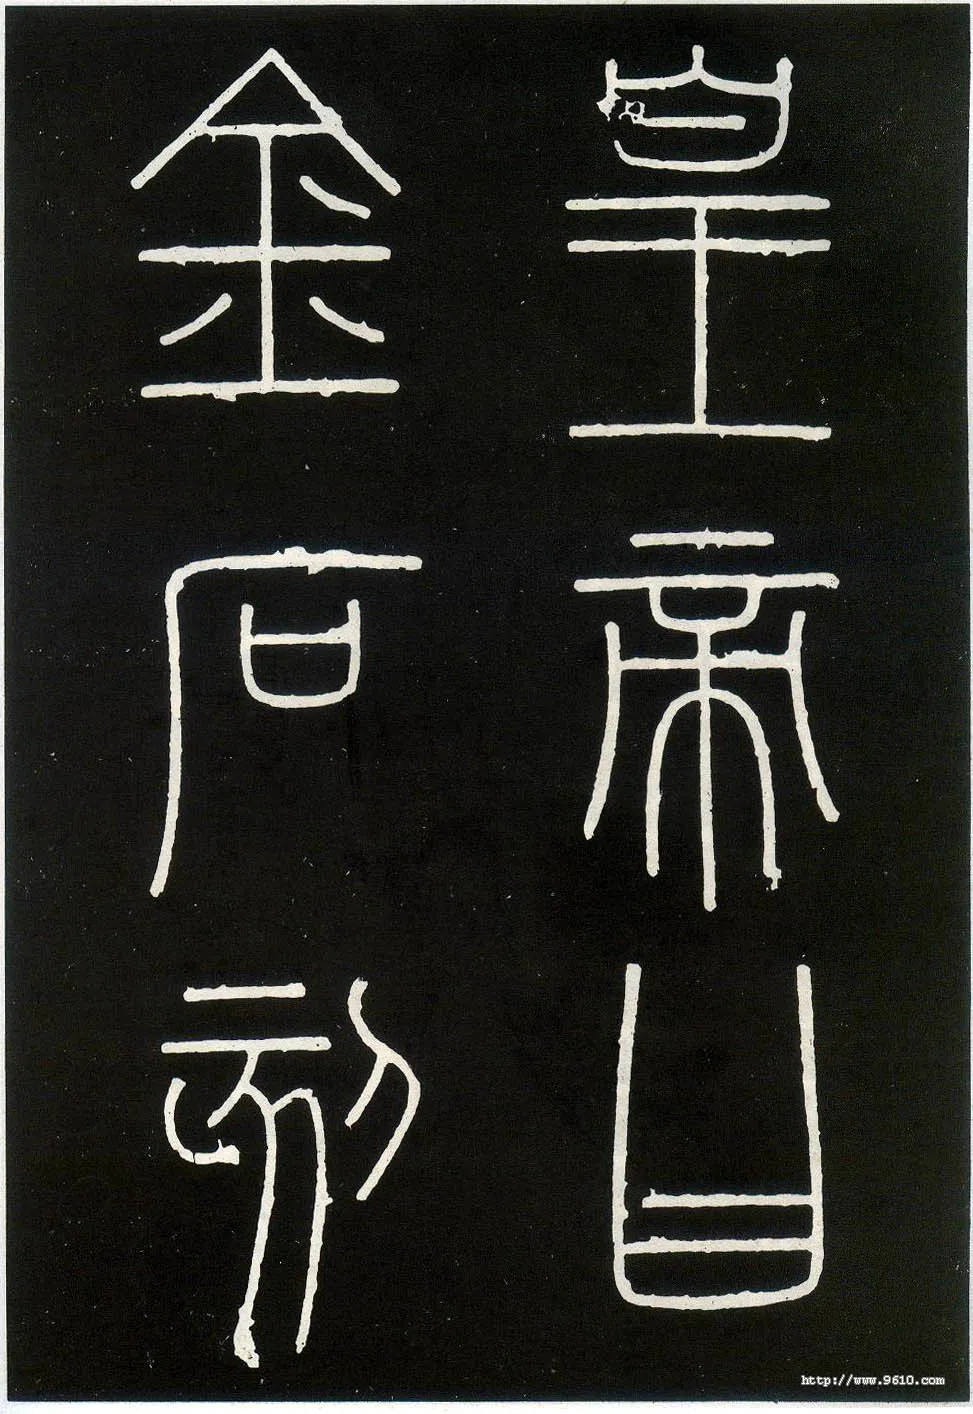 皇帝曰
金石刻
http://www.9610.com